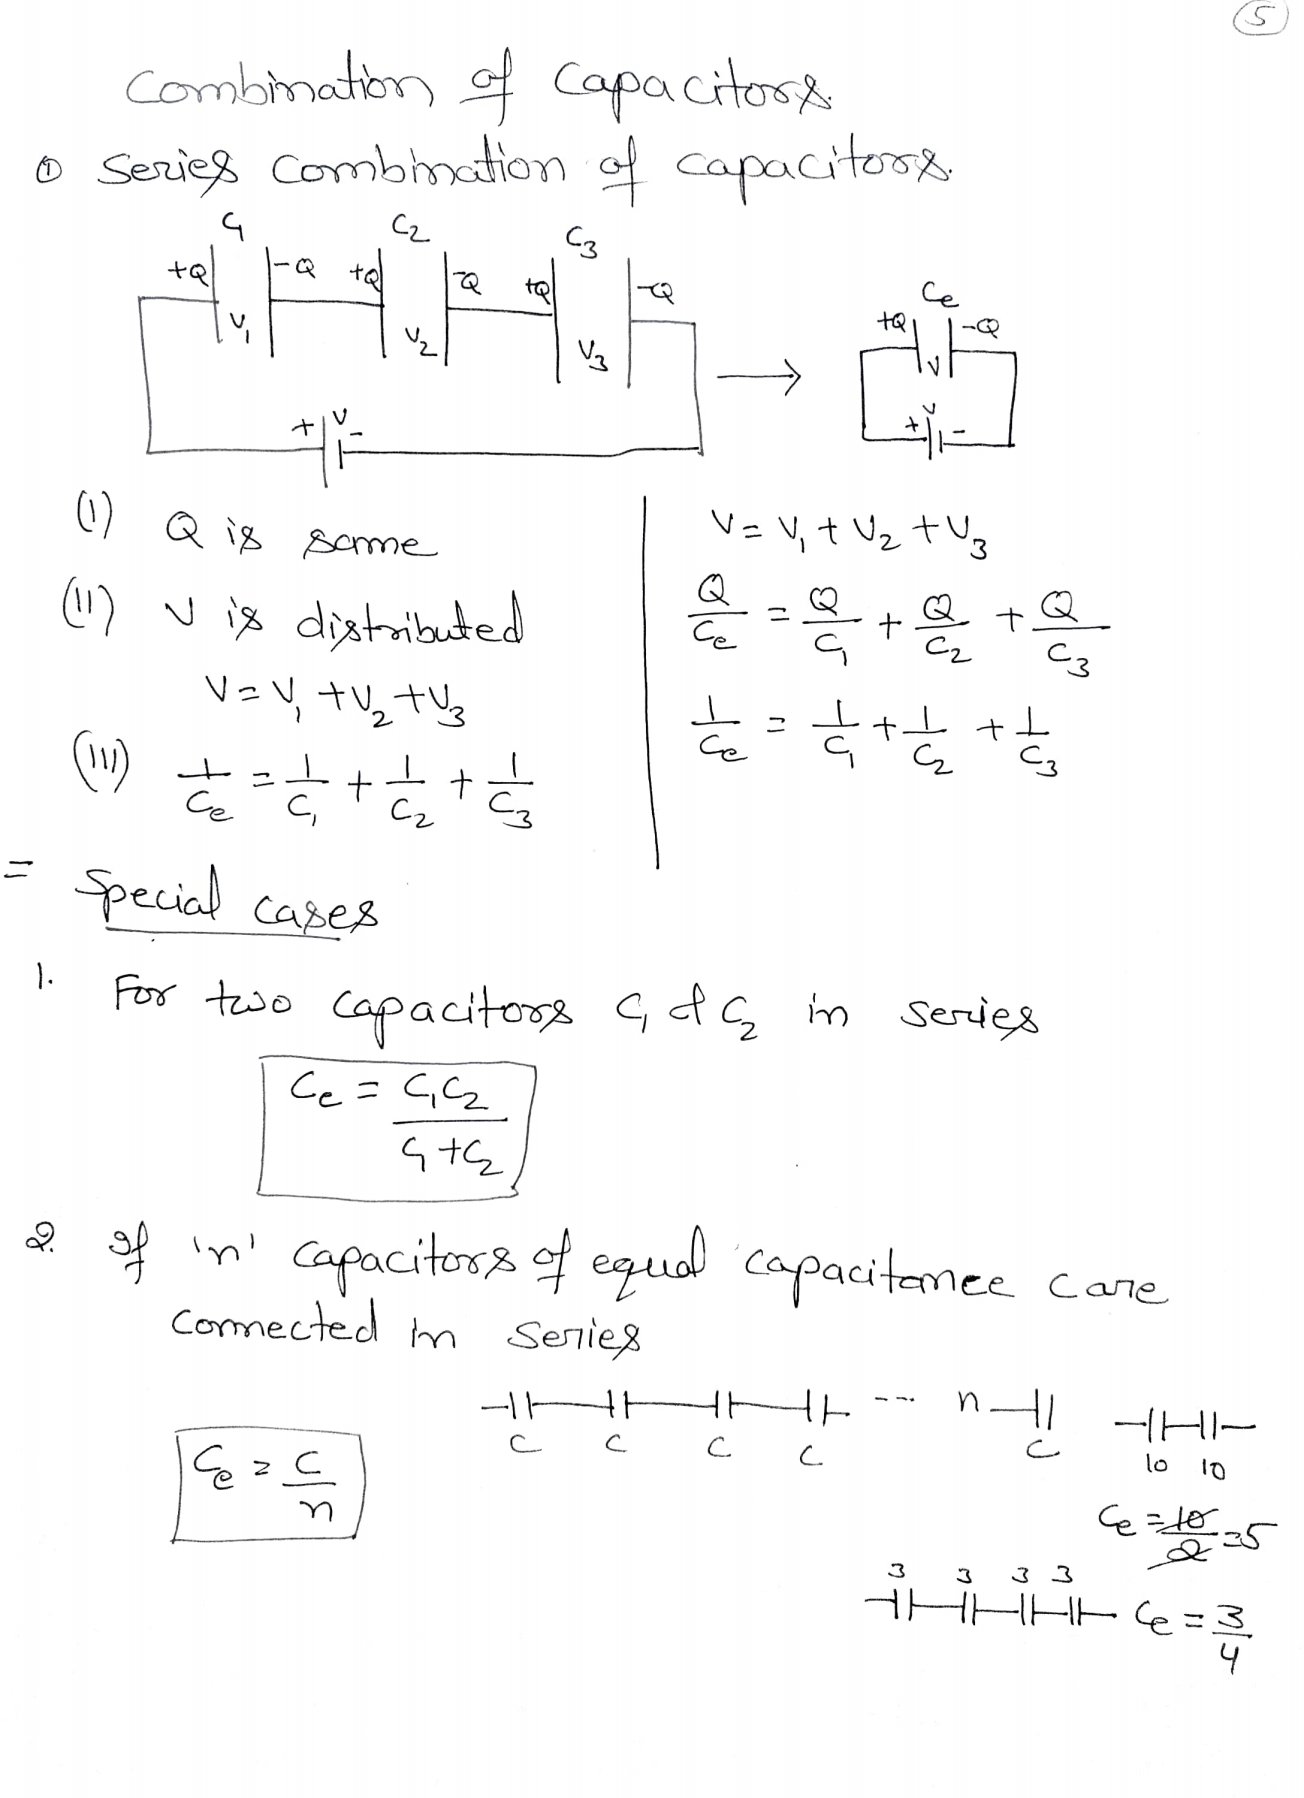 5
Combination of Capacitors.
① Series Combination of capacitors.
C₁ C₂ C₃
+Q -Q +Q -Q +Q -Q
V₁ V₂ V₃
+ V -
Ce
+Q -Q
V
+ V -
(I) Q is same
(II) V is distributed
V = V₁ + V₂ + V₃
(III) 1/Ce = 1/C₁ + 1/C₂ + 1/C₃
V = V₁ + V₂ + V₃
Q/Ce = Q/C₁ + Q/C₂ + Q/C₃
1/Ce = 1/C₁ + 1/C₂ + 1/C₃
= Special cases
1. For two capacitors C₁ & C₂ in series
Ce = C₁C₂/C₁+C₂
2. If 'n' capacitors of equal capacitance C are
connected in series
C C C C --- n C
Ce = C/n
10 10
Ce = 10/2 = 5
3 3 3 3
Ce = 3/4